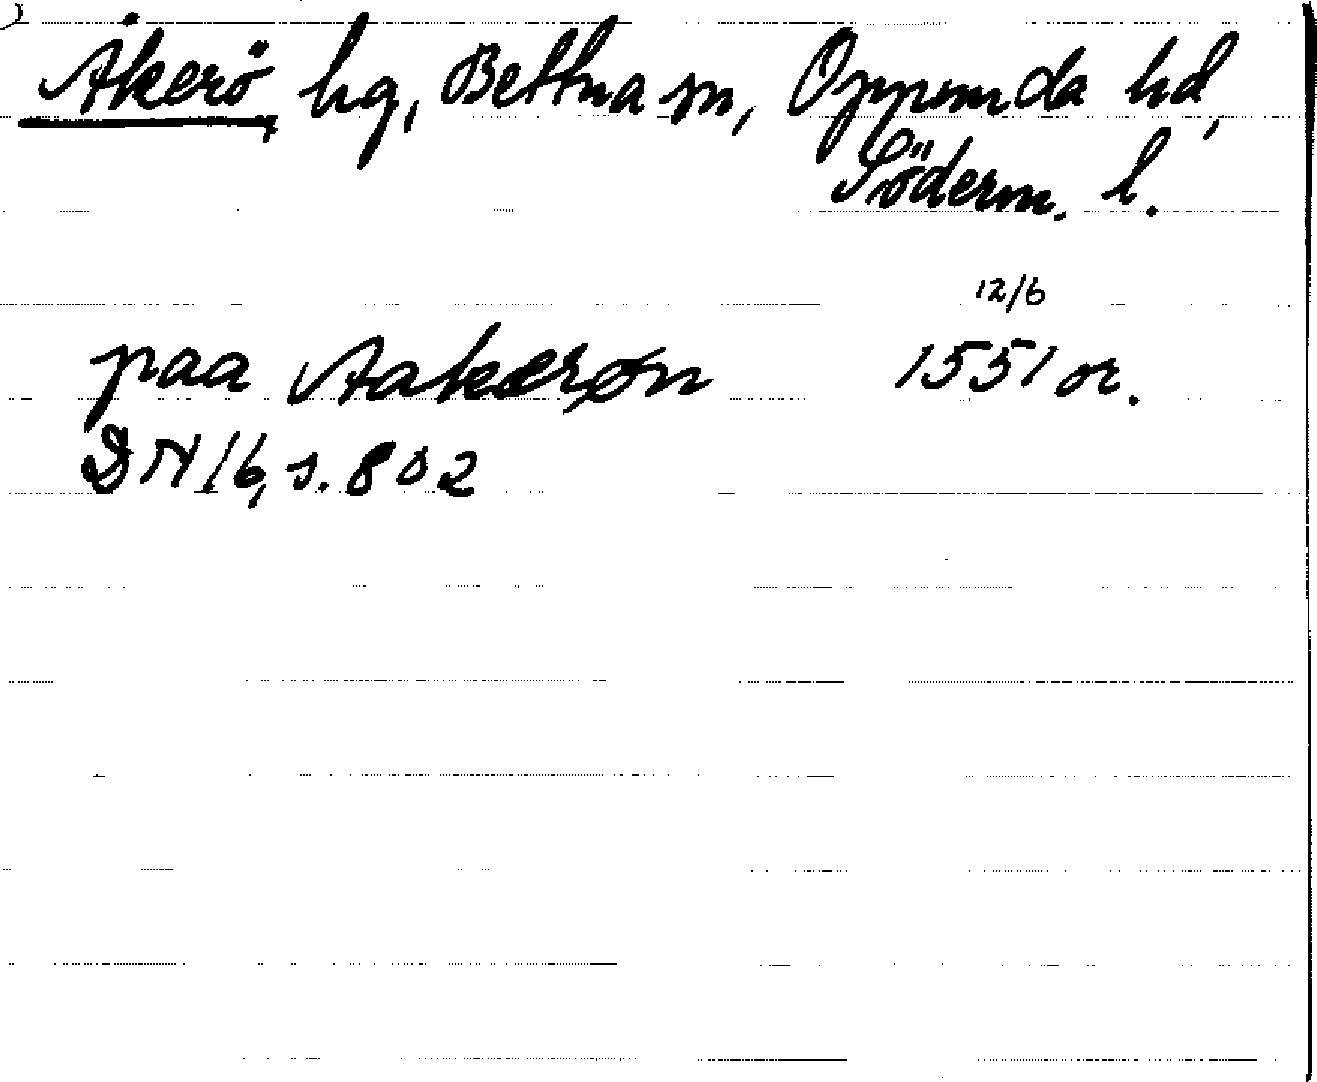 Åkerö, hg, Bettna sn, Oppunda hd,
Söderm. l.
12/6
paa Aakærøn 1551 or.
DN 16, s. 802